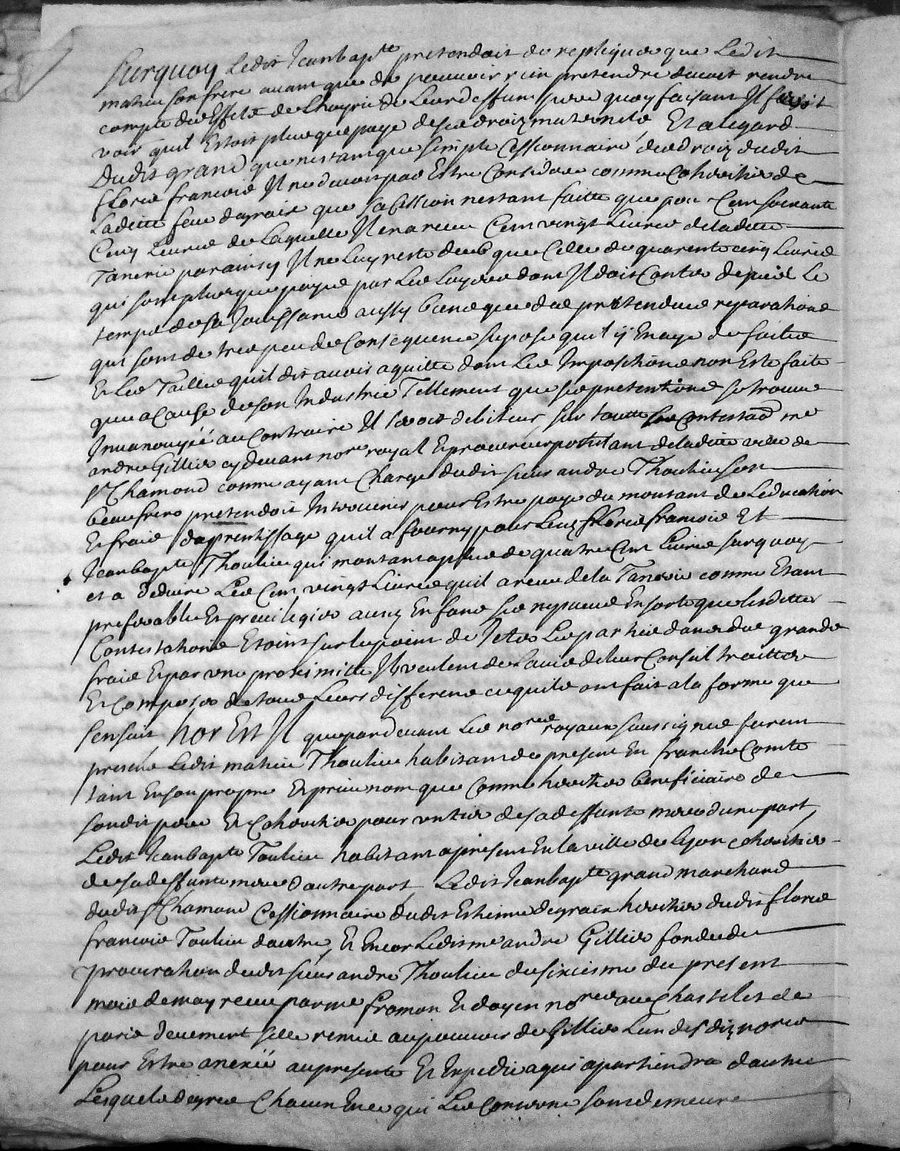 Surquoy Ledit Jeanbapte pretendoit de repliquer que Ledit
mathieu son frere auant que de pouuoir rien pretendre deuoit rendre
compte des Effets de Lhoyrie de Leur deffunt pere quoy faisant Il feroit
voir quil Estoit plus que paye de ses droiz maternels Et a legard
Dudit grand que nestant que simple Cessionnaire des droiz dudit
florie francois Il ne deuoit pas Estre Considere comme Coheritier de
Laditte feue degrais que sa Cession nestant faitte que pour Cent soixante
Cinq Liures de Laquelle Il en a receu Cent vingt Liures de ladette
Tanerie par ainsy Il ne Luy reste deub que Celle de quarente cinq Liures
qui sont plus que payé par Les Loyers dont Il doit Conter depuis Le
temps de sa Jouissance aussy bien que des pretendues reparations
qui sont de tres peu de Consequence supose quil y En aye de faites
Et Les Tailles quil dit auoir aquitté dont Les Impositions nont Esté faite
que a Cause de son Industrie Tellement que ses pretentions se trouue
au Contraire Il seroit debiteur sur toutes Les Contestaōns me
andre Gillier cy deuant nore royal Et procureur postulant de ladite ville de
St Chamond comme ayant Charge dudit sieur andre Thoulieu son
beaufrere pretendoit Interuenir pour Estre payé du montant de Leducation
Et fraix daprentissage quil a fourny pour Lesd florie francois Et
Jeanbapte Thoulieu qui montant a plus de quatre Cent Liures surquoy
et a deduire Les Cent vingt Liures quil a receu de la Tanerie comme Etant
preferable Et preuilegier aucuns Enfans En sorte que lesdittes
Contestations Etoint sur le point de Jetter Les parties dans des grands
fraix Et par vne proximitte Ils veulent de Lauis de leur Conseil traitter
Et Composer de tous Leurs differens ce quils ont fait a la forme que
sensuit hor Est Il que pardeuant Les nores royaux soussignes furent
presens Ledit mathieu Thoulieu habitant de present En franche Comté
tant En son propre Et priué nom que Comme heritier beneficiaire de
sondit pere Et Coheritier pour vn tier de sa deffunte mere dune part
Ledit Jeanbapte Toulieu habitant apresent En la ville de Lyon coheritier
de sa deffunte mere dautre part Ledit Jeanbapte grand marchand
dudit St Chamond Cessionnaire dudit Estienne degrais heritier dudit florie
francois Toulieu dautre, Et Encor Ledit me andre Gillier fondé de
procuration dudit sieur andre Thoulieu du sixiesme du present
mois de may receu par mes froman Et doyen nores au Chastelet de
paris deuement sellé remise au pouuoir de Gillier Lun desdiz nores
pour Estre anexé au presente Et Expedié a qui apartiendra dautre
Lesquels degrés Chacun En ce qui Les Concerne sont demeuré